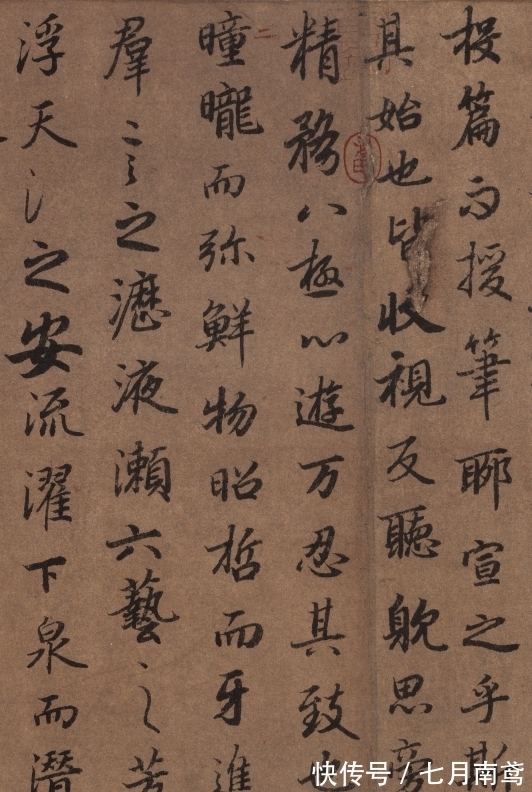 投篇而援筆聊宣之乎斯
其始也皆收視反聽躭思旁
精務八極心遊万忍其致也
曈曨而弥鮮物昭哲而牙進
羣言之瀝液瀨六藝之芳
浮天之安流濯下泉而潛
快传号 / 七月南鸢